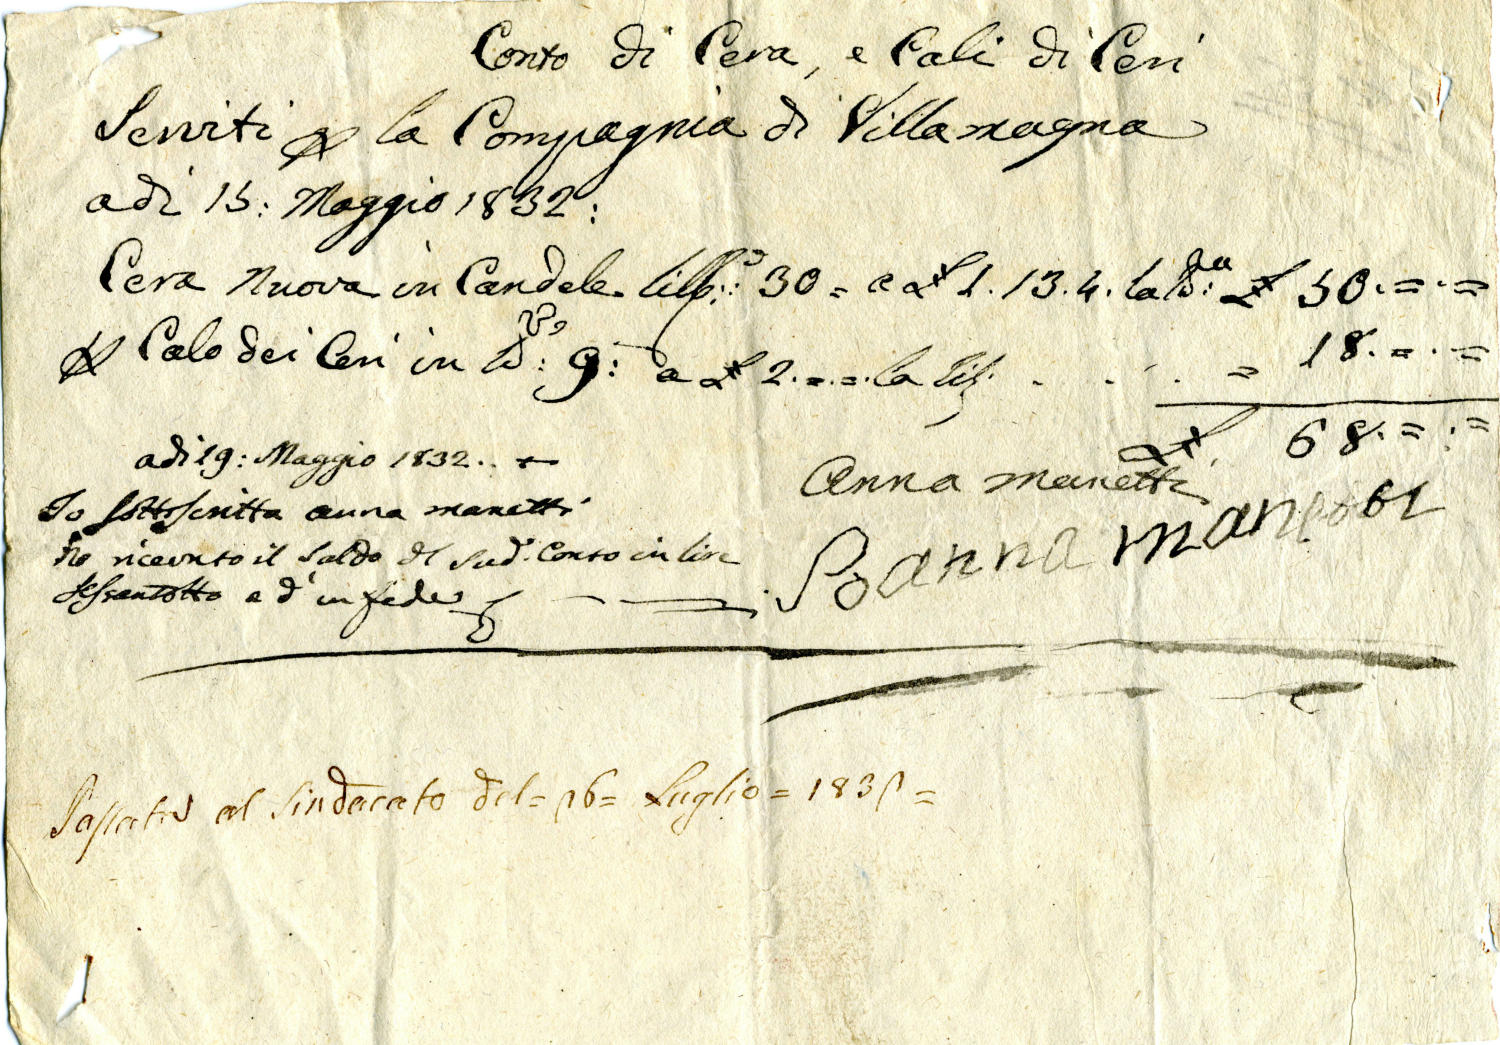 Conto di Cera, e Cali di Ceri
Serviti p la Compagnia di Villamagna
adì 15: Maggio 1832:
Cera Nuova in Candele libb.: 30 = a £ 1.13.4. la lb: £ 50.=.=
p Calo dei Ceri in lb: 9: a £ 2.=.=. la lib. . . . = 18.=.=
£ 68.=.=
Anna manetti
adì 19: Maggio 1832..
Io sottoscritta anna manetti
ho riceuto il saldo del sud.º Conto in lire
sessantotto e d' in fede
Io anna manetti
Passato al Sindacato del = 26 = Luglio =